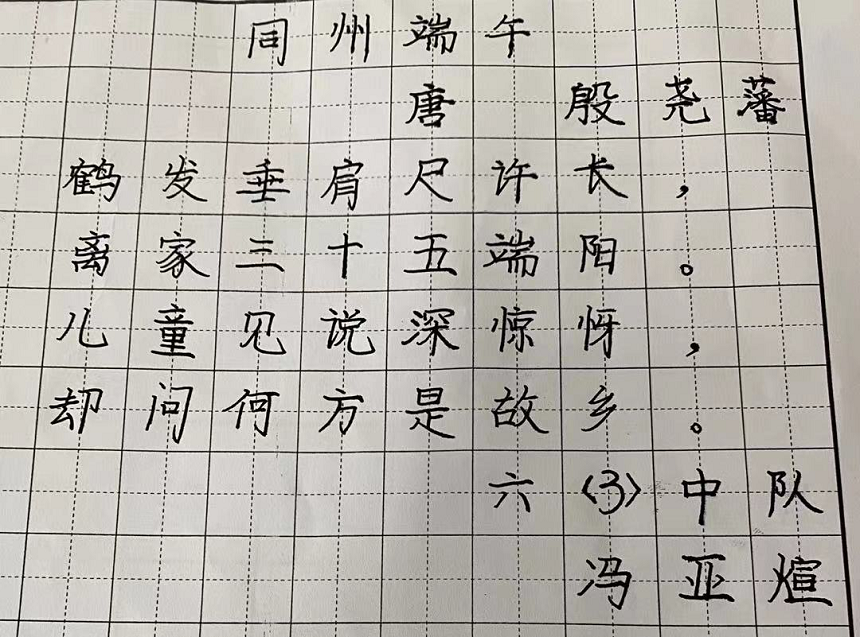 同州端午
唐 殷尧藩
鹤发垂肩尺许长，
离家三十五端阳。
儿童见说深惊怪，
却问何方是故乡。
六〈3〉中队
冯亚煊